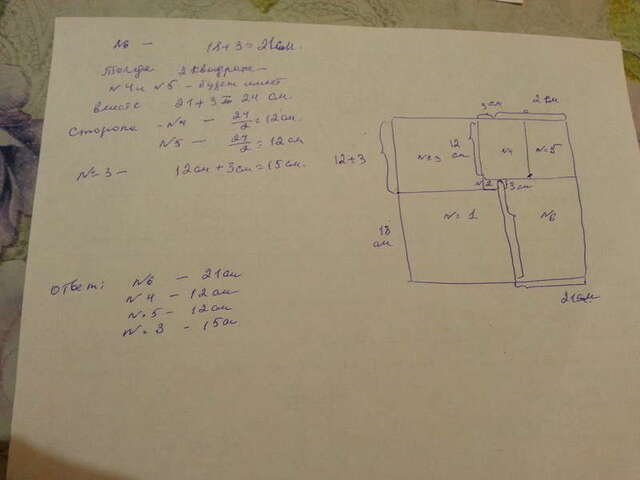 №6 — 18+3=21см.
Тогда 2 квадрата —
№4 и №5 – будет имет
вместе 21+3= 24 см.
Сторона -№4 — 24/2=12см.
№5 — 24/2=12см
№3 — 12см+3см=15см.
Ответ: №6 — 21см
№4 — 12см
№5 — 12см
№3 — 15см
3см 21см
12+3
12 см
№3
№4
№5
№2
3см
18 см
№1
№6
21см